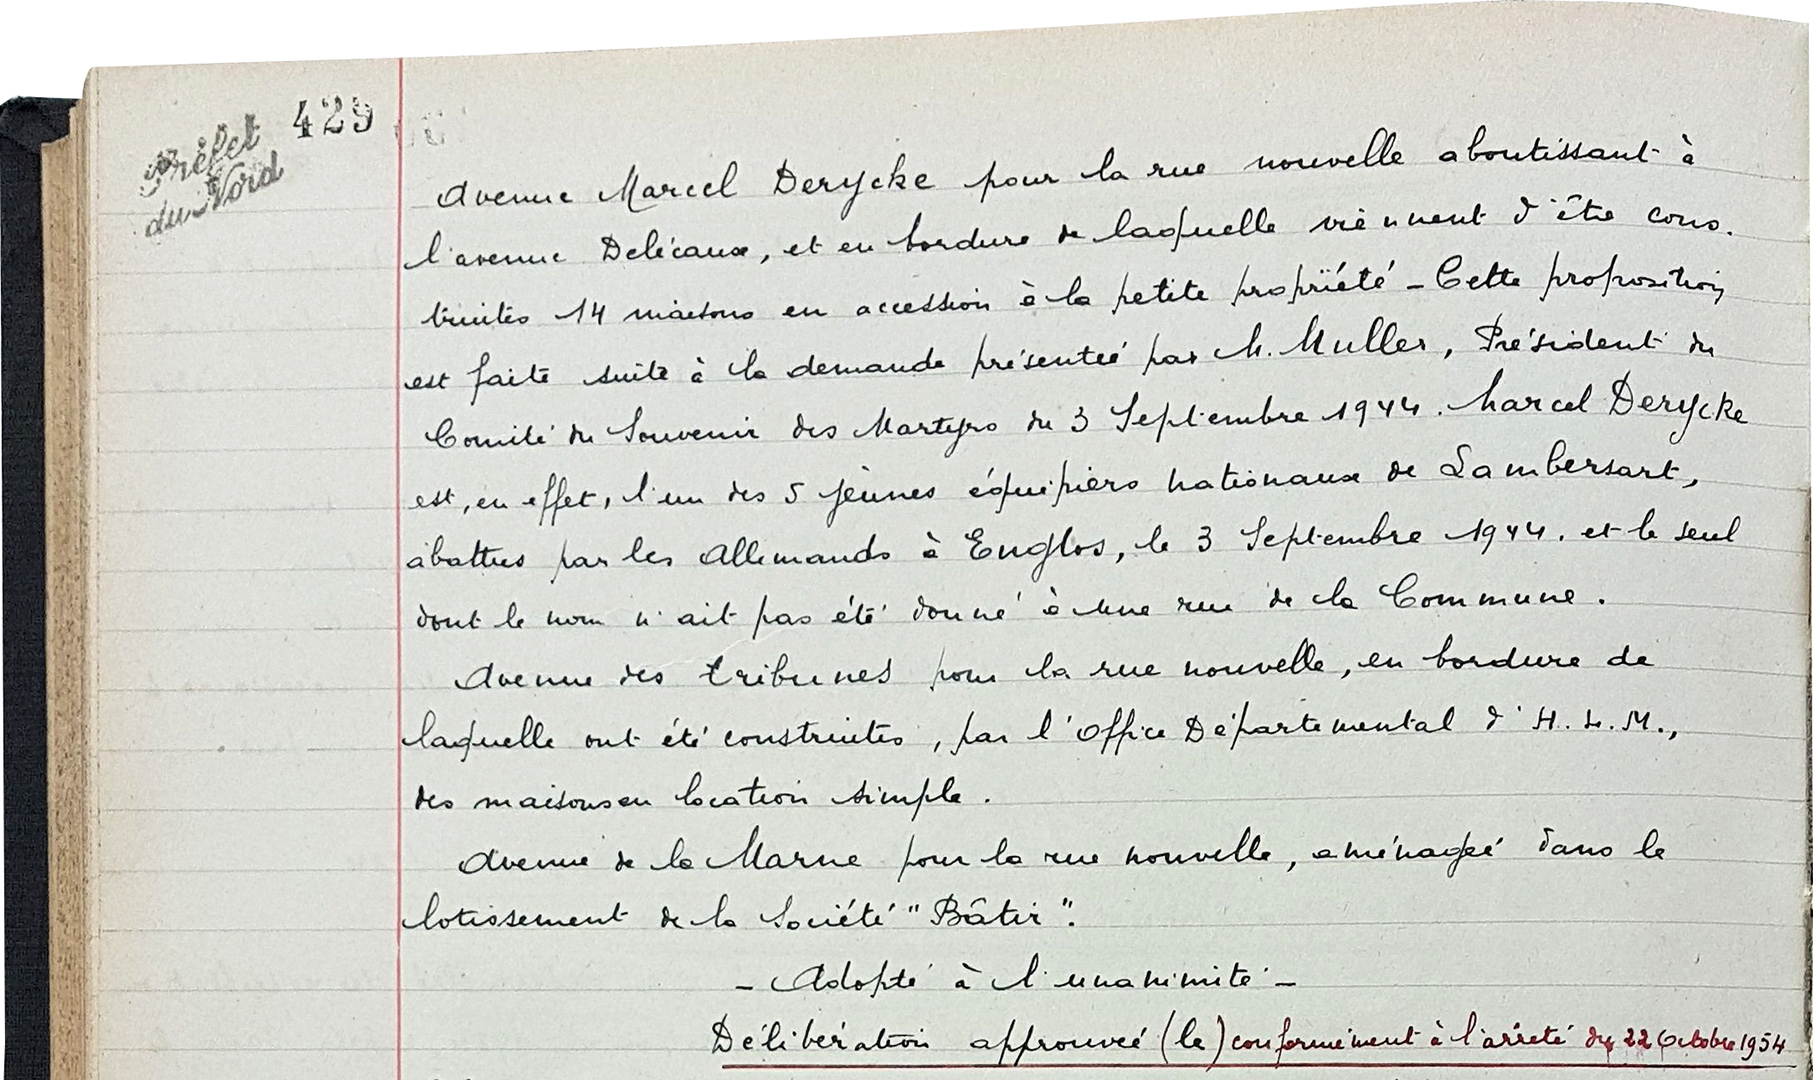 429
Préfet
du Nord
Avenue Marcel Derycke pour la rue nouvelle aboutissant à
l'avenue Delécaux, et en bordure de laquelle viennent d'être cons.
truites 14 maisons en accession à la petite propriété - Cette proposition
est faite suite à la demande présentée par M. Muller, Président du
Comité du Souvenir des Martyrs du 3 Septembre 1944. Marcel Derycke
est, en effet, l'un des 5 jeunes équipiers nationaux de Lambersart,
abattus par les Allemands à Englos, le 3 Septembre 1944. et le seul
dont le nom n'ait pas été donné à une rue de la Commune.
Avenue des tribunes pour la rue nouvelle, en bordure de
laquelle ont été construites, par l'Office Départemental d'H.L.M.,
des maisons en location simple.
Avenue de la Marne pour la rue nouvelle, aménagée dans le
lotissement de la Société "Bâtir".
- Adopté à l'unanimité -
Délibération approuvée (le) conformément à l'arrêté du 22 Octobre 1954